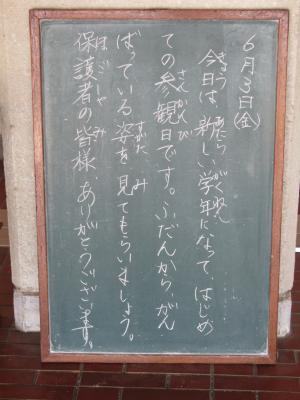 6月3日(金)
今日は、新しい学年になって、はじめ
ての参観日です。ふだんから、がん
ばっている姿を見てもらいましょう。
保護者の皆様、ありがとうございます。